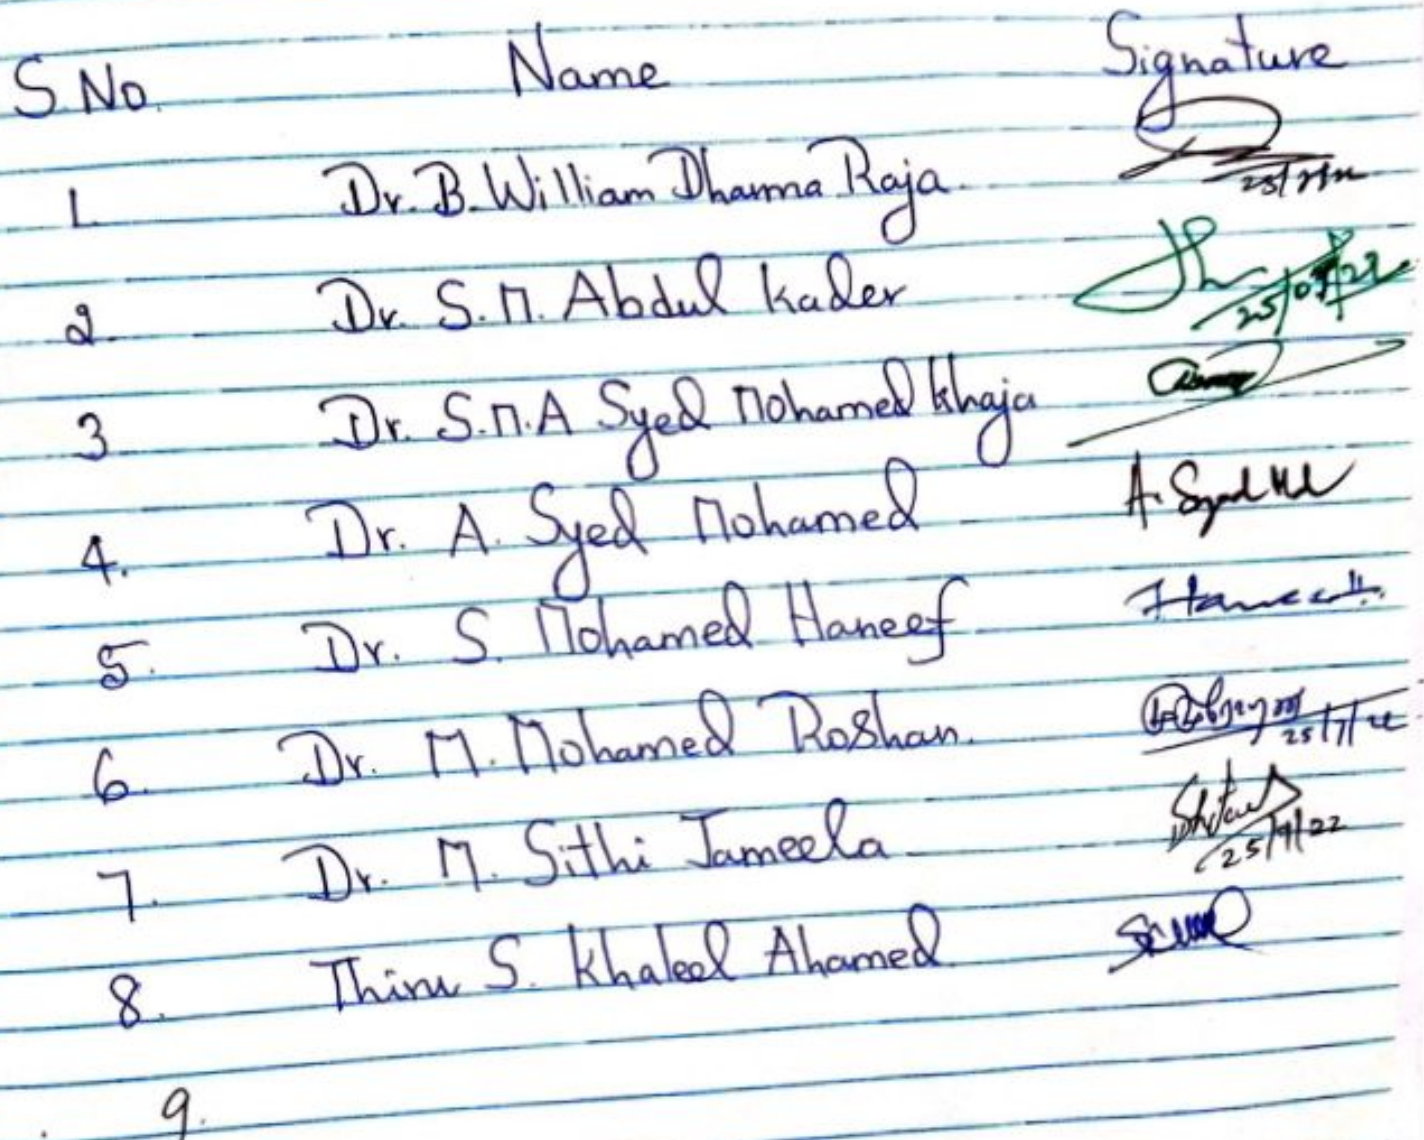 S.No. Name Signature
1. Dr. B. William Dharma Raja 25/7/22
2. Dr. S.M. Abdul Kader 25/07/22
3 Dr. S.M.A Syed Mohamed Khaja
4. Dr. A. Syed Mohamed A. Syed Md
5. Dr. S. Mohamed Haneef Haneef
6. Dr. M. Mohamed Roshan. 25/7/22
7. Dr. M. Sithi Jameela 25/7/22
8. Thiru S. Khaleel Ahamed
9.